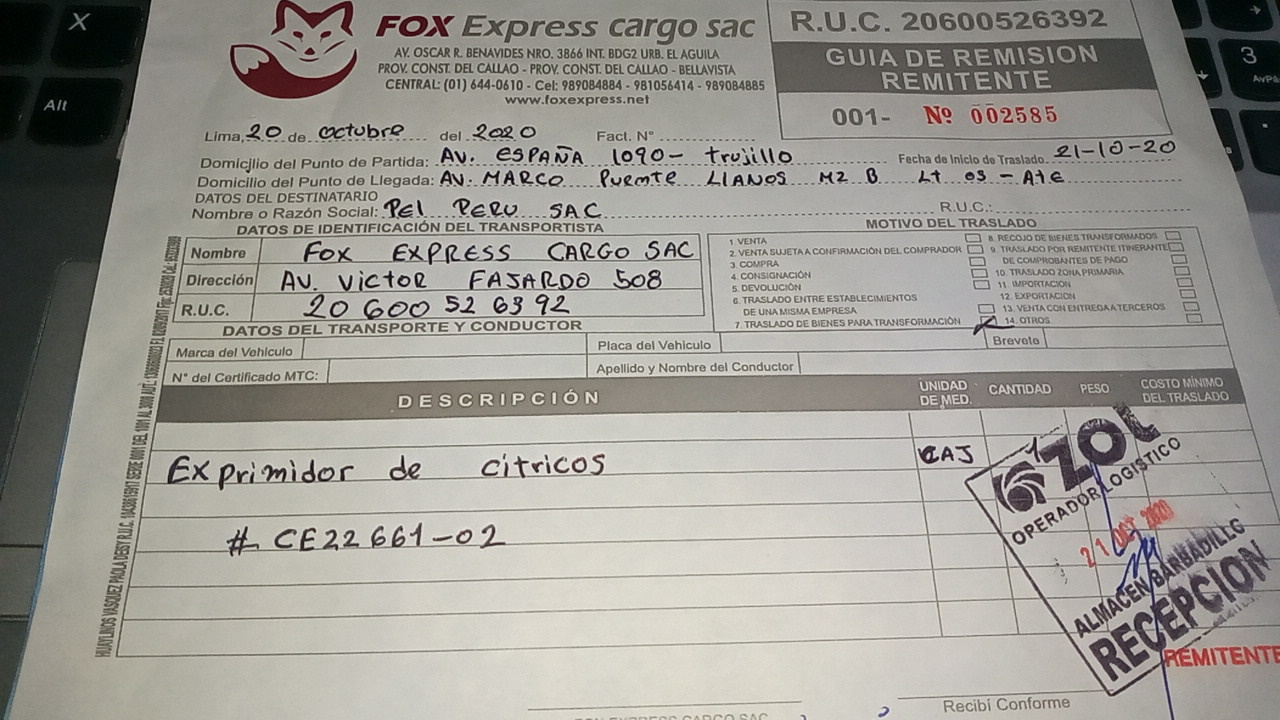 FOX Express cargo sac
AV. OSCAR R. BENAVIDES NRO. 3866 INT. BDG2 URB. EL AGUILA
PROV. CONST. DEL CALLAO - PROV. CONST. DEL CALLAO - BELLAVISTA
CENTRAL: (01) 644-0610 - Cel: 989084884 - 981056414 - 989084885
www.foxexpress.net
R.U.C. 20600526392
GUIA DE REMISION
REMITENTE
001- Nº 002585
Lima, 20 de octubre del 2020 Fact. N°
Domicilio del Punto de Partida: AV. ESPAÑA 1090- trujillo Fecha de Inicio de Traslado. 21-10-20
Domicilio del Punto de Llegada: AV. MARCO PUEMTE LLANOS MZ B Lt 03 - Ate
DATOS DEL DESTINATARIO
Nombre o Razón Social: PEL PERU SAC R.U.C.:
DATOS DE IDENTIFICACIÓN DEL TRANSPORTISTA
Nombre FOX EXPRESS CARGO SAC
Dirección AV. VICTOR FAJARDO 508
R.U.C. 20600526392
MOTIVO DEL TRASLADO
1 VENTA
2. VENTA SUJETA A CONFIRMACIÓN DEL COMPRADOR
3. COMPRA
4. CONSIGNACIÓN
5. DEVOLUCIÓN
6. TRASLADO ENTRE ESTABLECIMIENTOS
DE UNA MISMA EMPRESA
7. TRASLADO DE BIENES PARA TRANSFORMACIÓN
8. RECOJO DE BIENES TRANSFORMADOS
9. TRASLADO POR REMITENTE ITINERANTE
DE COMPROBANTES DE PAGO
10. TRASLADO ZONA PRIMARIA
11. IMPORTACION
12. EXPORTACION
13. VENTA CON ENTREGA A TERCEROS
14. OTROS
DATOS DEL TRANSPORTE Y CONDUCTOR
Marca del Vehiculo Placa del Vehiculo Brevete
N° del Certificado MTC: Apellido y Nombre del Conductor
DESCRIPCIÓN UNIDAD DE MED. CANTIDAD PESO COSTO MÍNIMO DEL TRASLADO
Exprimidor de citricos CAJ 1
# CE22661-02
ZOL
OPERADOR LOGISTICO
21 OCT 2020
ALMACEN BARBADILLO
RECEPCION
REMITENTE
FOX EXPRESS CARGO SAC
Recibí Conforme
X
Alt
3
AvPá